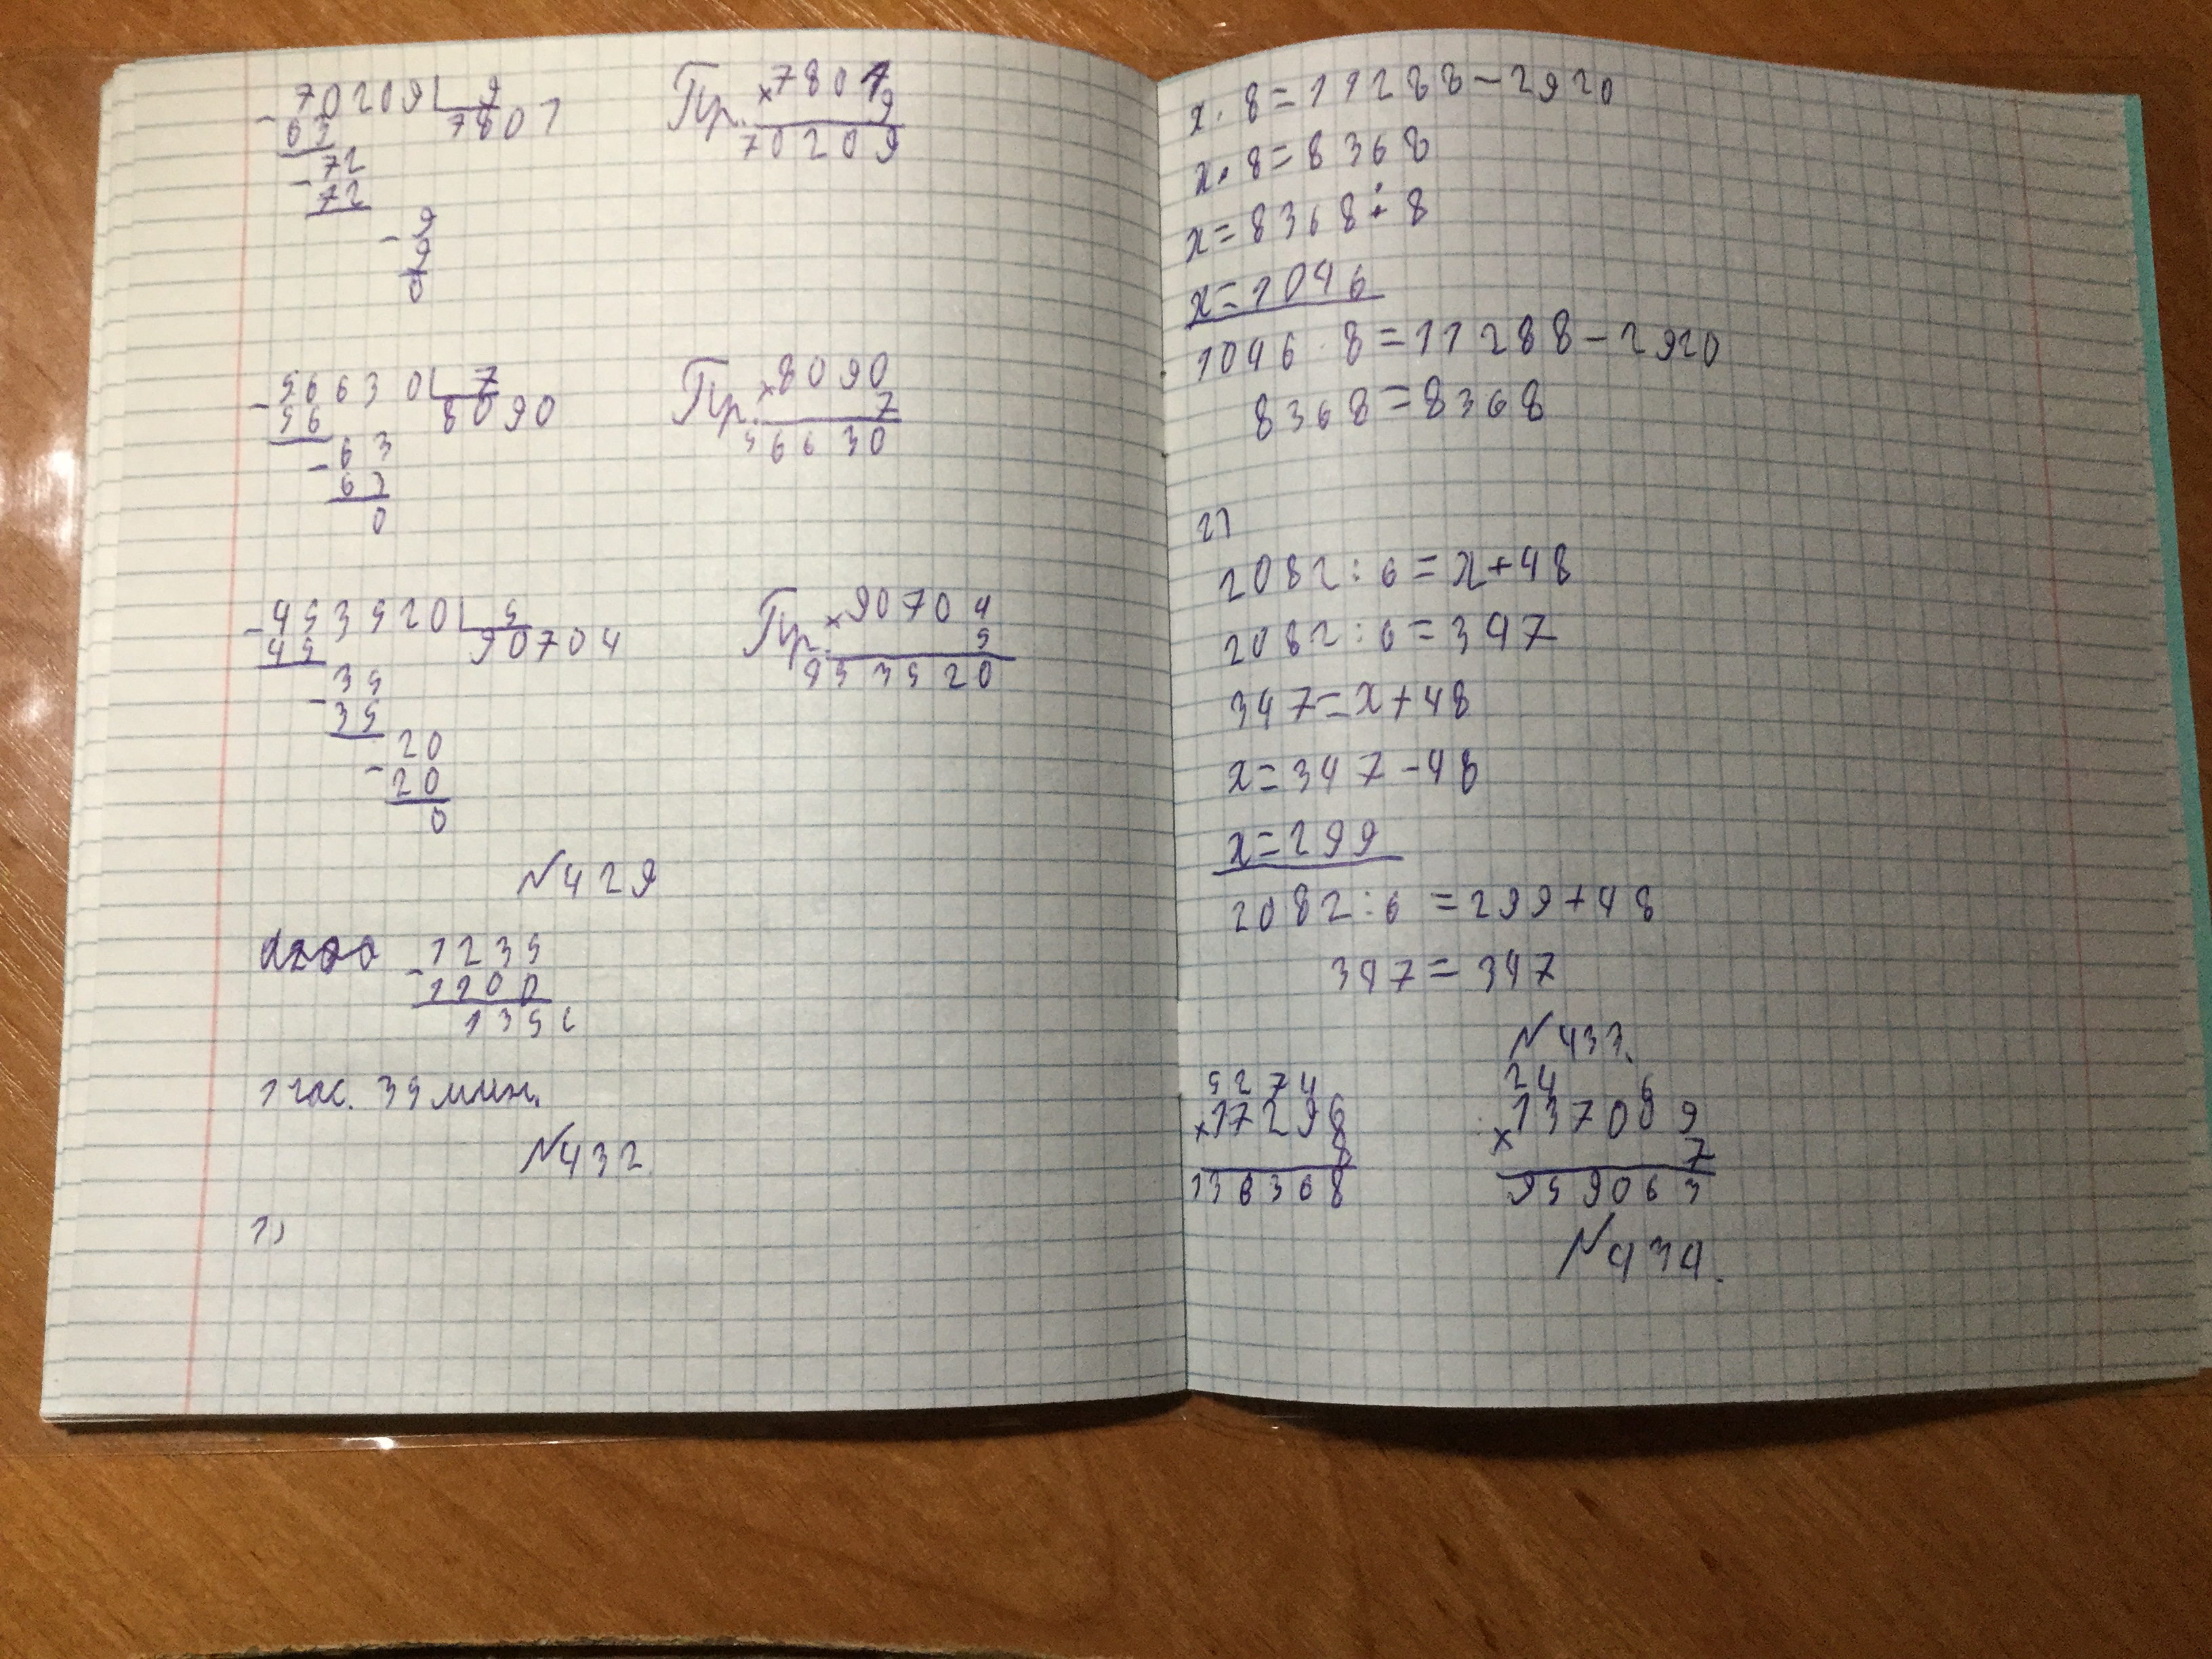 70209 | 9
63 7801
72
72
9
9
0
Пр. × 7801
9
70209
56630 | 7
56 8090
63
63
0
Пр. × 8090
7
56630
453520 | 5
45 90704
35
35
20
20
0
Пр. × 90704
5
453520
№429
- 1235
1100
135 с
1 час. 35 мин.
№432
1)
x · 8 = 11288 - 2920
x · 8 = 8368
x = 8368 : 8
x = 1046
1046 · 8 = 11288 - 2920
8368 = 8368
2)
2082 : 6 = x + 48
2082 : 6 = 347
347 = x + 48
x = 347 - 48
x = 299
2082 : 6 = 299 + 48
347 = 347
№433.
5274
× 17296
8
138368
24 6
× 137089
7
959063
№434.